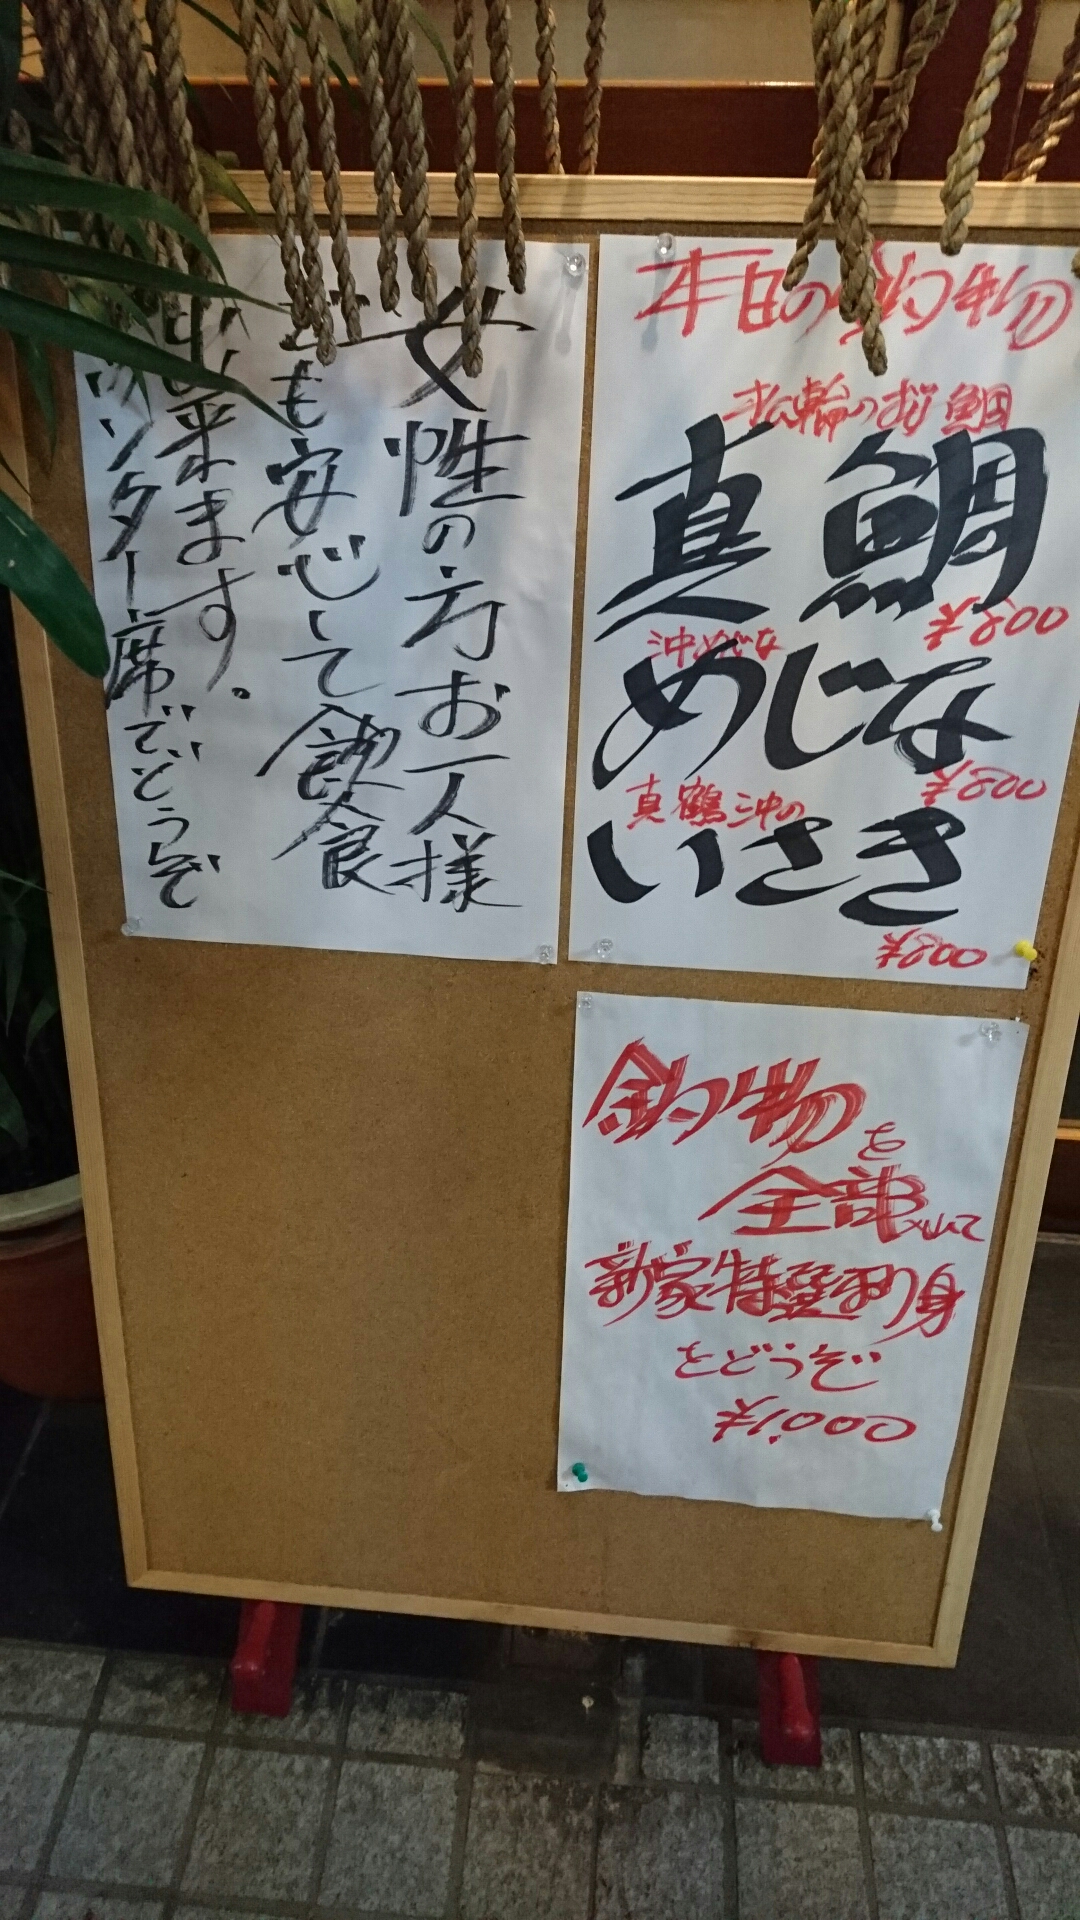 本日の釣物
真鯛
¥800
沖めじな
めじな
¥800
真鶴沖の
いさき
¥800
女性の方お一人様
でも安心して飲食
出来ます。
カウンター席でどうぞ
釣物を
全部入れて
新家特選刺身
をどうぞ
¥1,000